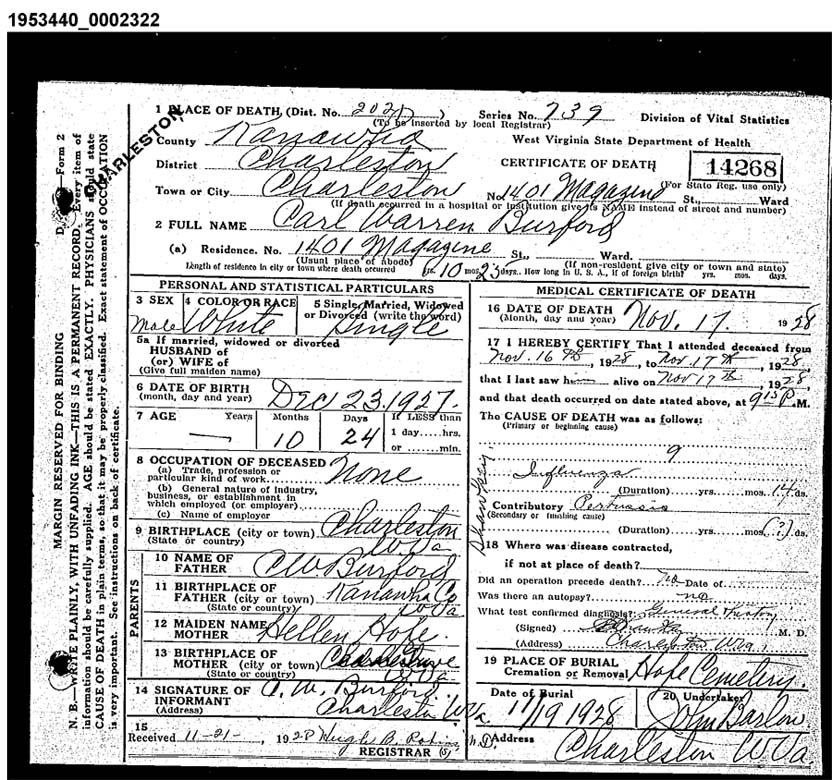 1953440_0002322
MARGIN RESERVED FOR BINDING
Form 2
N. B.—WRITE PLAINLY, WITH UNFADING INK—THIS IS A PERMANENT RECORD. Every item of
information should be carefully supplied. AGE should be stated EXACTLY. PHYSICIANS should state
CAUSE OF DEATH in plain terms, so that it may be properly classified. Exact statement of OCCUPATION
is very important. See instructions on back of certificate.
CHARLESTON
1 PLACE OF DEATH, (Dist. No. Series No. 739 Division of Vital Statistics
(To be inserted by local Registrar)
County Kanawha West Virginia State Department of Health
District Charleston CERTIFICATE OF DEATH 14268
Town or City Charleston No. 1401 Magazine St., Ward
(For State Reg. use only)
(If death occurred in a hospital or institution give its NAME instead of street and number)
2 FULL NAME Carl Warren Burford
(a) Residence. No. 1401 Magazine St., Ward.
(Usual place of abode) (If non-resident give city or town and state)
Length of residence in city or town where death occurred yrs. 10 mos. 23 days. How long in U. S. A., if of foreign birth? yrs. mos. days.
PERSONAL AND STATISTICAL PARTICULARS
3 SEX 4 COLOR OR RACE 5 Single, Married, Widowed
or Divorced (write the word)
Male White Single
5a If married, widowed or divorced
HUSBAND of
(or) WIFE of
(Give full maiden name)
6 DATE OF BIRTH
(month, day and year) Dec 23, 1927.
7 AGE Years Months Days If LESS than
1 day....hrs.
or ......min.
— 10 24
8 OCCUPATION OF DECEASED None
(a) Trade, profession or
particular kind of work
(b) General nature of industry,
business, or establishment in
which employed (or employer)
(c) Name of employer
9 BIRTHPLACE (city or town) Charleston
(State or country) W Va
PARENTS
10 NAME OF
FATHER C.W. Burford
11 BIRTHPLACE OF
FATHER (city or town) Kanawha Co
(State or country) W Va
12 MAIDEN NAME
MOTHER Hellen Hope
13 BIRTHPLACE OF
MOTHER (city or town)
(State or country) W Va
14 SIGNATURE OF
INFORMANT C. W. Burford
(Address) Charleston W Va.
15
Received 11-21-, 1928 Hugh B.
REGISTRAR
MEDICAL CERTIFICATE OF DEATH
16 DATE OF DEATH
(Month, day and year) Nov. 17. 1928
17 I HEREBY CERTIFY That I attended deceased from
Nov. 16 th, 1928, to Nov. 17 th, 1928,
that I last saw him alive on Nov 17 th, 1928,
and that death occurred on date stated above, at 9 15 P.M.
The CAUSE OF DEATH was as follows:
(Primary or beginning cause)
9
Influenza
(Duration) yrs. mos. 14 ds.
Contributory Pertussis
(Secondary or finishing cause)
(Duration) yrs. mos. (?) ds.
18 Where was disease contracted,
if not at place of death?
Did an operation precede death? no Date of
Was there an autopsy? no
What test confirmed diagnosis? General History
(Signed) M. D.
(Address) Charleston W Va.
19 PLACE OF BURIAL
Cremation or Removal Hope Cemetery.
Date of Burial 11/19 1928
20 Undertaker
John Barlow
Address
Charleston W Va.